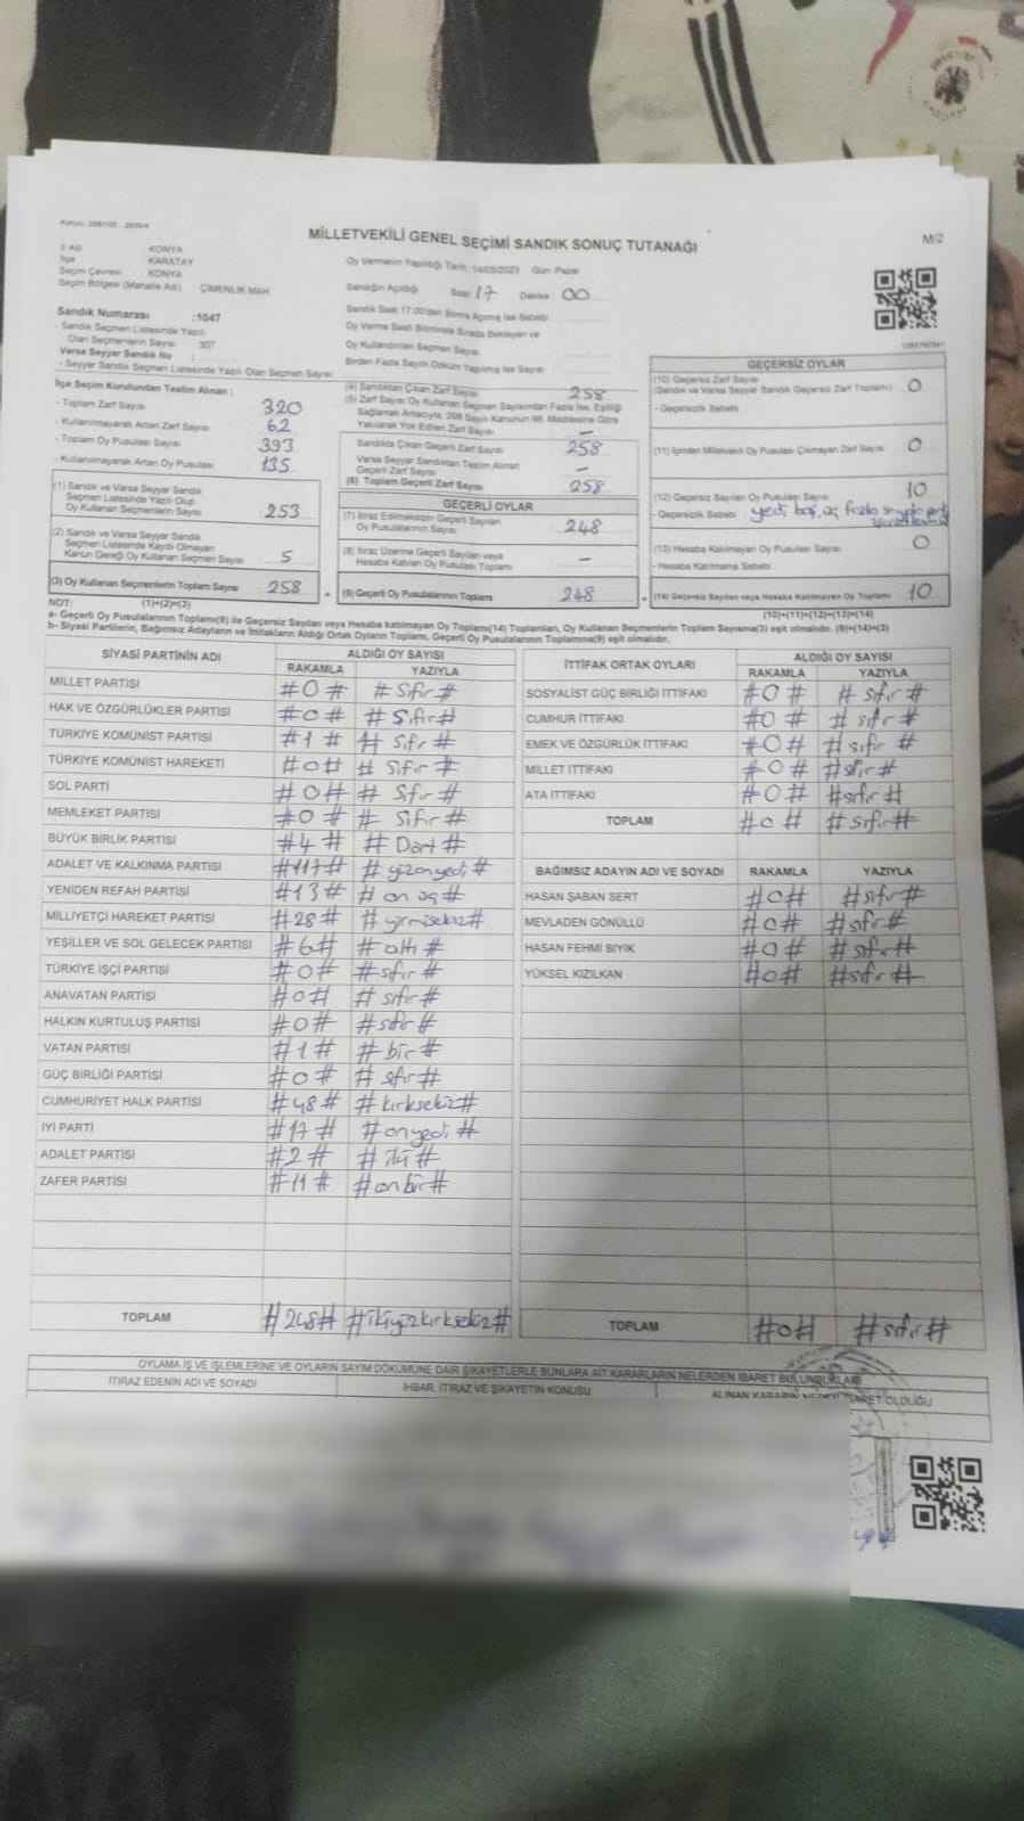 MİLLETVEKİLİ GENEL SEÇİMİ SANDIK SONUÇ TUTANAĞI
M/2
İl Adı KONYA
İlçe KARATAY
Seçim Çevresi KONYA
Seçim Bölgesi (Mahalle Adı) ÇİMENLİK MAH
Oy Vermenin Yapıldığı Tarih :14/05/2023 Gün: Pazar
Sandığın Açıldığı Saat 17 Dakika 00
Sandık Numarası :1047
- Sandık Seçmen Listesinde Yazılı
Olan Seçmenlerin Sayısı 307
Varsa Seyyar Sandık No
- Seyyar Sandık Seçmen Listesinde Yazılı Olan Seçmen Sayısı
Oy Kullandırılan Seçmen Sayısı
İlçe Seçim Kurulundan Teslim Alınan :
- Toplam Zarf Sayısı 320
- Kullanılmayarak Artan Zarf Sayısı 62
- Toplam Oy Pusulası Sayısı 393
- Kullanılmayarak Artan Oy Pusulası 135
(1) Sandık ve Varsa Seyyar Sandık
Seçmen Listesinde Yazılı Olup
Oy Kullanan Seçmenlerin Sayısı 253
(2) Sandık ve Varsa Seyyar Sandık
Seçmen Listesinde Kaydı Olmayan
Kanun Gereği Oy Kullanan Seçmen Sayısı 5
(3) Oy Kullanan Seçmenlerin Toplam Sayısı 258
(1)+(2)=(3)
(4) Sandıktan Çıkan Zarf Sayısı 258
Yakılarak Yok Edilen Zarf Sayısı –
Sandıkta Çıkan Geçerli Zarf Sayısı 258
Varsa Seyyar Sandıktan Teslim Alınan
Geçerli Zarf Sayısı –
(6) Toplam Geçerli Zarf Sayısı 258
GEÇERLİ OYLAR
(7) İtiraz Edilmeksizin Geçerli Sayılan
Oy Pusulalarının Sayısı 248
(8) İtiraz Üzerine Geçerli Sayılan veya
Hesaba Katılan Oy Pusulaları Toplamı –
(9) Geçerli Oy Pusulalarının Toplamı 248
GEÇERSİZ OYLAR
(10) Geçersiz Zarf Sayısı
(Sandık ve Varsa Seyyar Sandık Geçersiz Zarf Toplamı) 0
- Geçersizlik Sebebi
(11) İçinden Milletvekili Oy Pusulası Çıkmayan Zarf Sayısı 0
(12) Geçersiz Sayılan Oy Pusulası Sayısı 10
- Geçersizlik Sebebi yedi boş, üç fazla
(13) Hesaba Katılmayan Oy Pusulası Sayısı 0
- Hesaba Katılmama Sebebi
(14) Geçersiz Sayılan veya Hesaba Katılmayan Oy Toplamı 10
(10)+(11)+(12)+(13)=(14)
NOT:
a- Geçerli Oy Pusulalarının Toplamı(9) ile Geçersiz Sayılan veya Hesaba katılmayan Oy Toplamı(14) Toplamları, Oy Kullanan Seçmenlerin Toplam Sayısına(3) eşit olmalıdır. (9)+(14)=(3)
b- Siyasi Partilerin, Bağımsız Adayların ve İttifakların Aldığı Ortak Oyların Toplamı, Geçerli Oy Pusulalarının Toplamına(9) eşit olmalıdır.
SİYASİ PARTİNİN ADI ALDIĞI OY SAYISI
RAKAMLA YAZIYLA
MİLLET PARTİSİ #0# #Sıfır#
HAK VE ÖZGÜRLÜKLER PARTİSİ #0# #Sıfır#
TÜRKİYE KOMÜNİST PARTİSİ #1# #Sıfır#
TÜRKİYE KOMÜNİST HAREKETİ #0# #Sıfır#
SOL PARTİ #0# #Sıfır#
MEMLEKET PARTİSİ #0# #Sıfır#
BÜYÜK BİRLİK PARTİSİ #4# #Dört#
ADALET VE KALKINMA PARTİSİ #117# #yüzonyedi#
YENİDEN REFAH PARTİSİ #13# #on üç#
MİLLİYETÇİ HAREKET PARTİSİ #28# #yirmisekiz#
YEŞİLLER VE SOL GELECEK PARTİSİ #6# #altı#
TÜRKİYE İŞÇİ PARTİSİ #0# #sıfır#
ANAVATAN PARTİSİ #0# #sıfır#
HALKIN KURTULUŞ PARTİSİ #0# #sıfır#
VATAN PARTİSİ #1# #bir#
GÜÇ BİRLİĞİ PARTİSİ #0# #sıfır#
CUMHURİYET HALK PARTİSİ #48# #kırksekiz#
İYİ PARTİ #17# #onyedi#
ADALET PARTİSİ #2# #iki#
ZAFER PARTİSİ #11# #onbir#
TOPLAM #248# #ikiyüzkırksekiz#
İTTİFAK ORTAK OYLARI ALDIĞI OY SAYISI
RAKAMLA YAZIYLA
SOSYALİST GÜÇ BİRLİĞİ İTTİFAKI #0# #sıfır#
CUMHUR İTTİFAKI #0# #sıfır#
EMEK VE ÖZGÜRLÜK İTTİFAKI #0# #sıfır#
MİLLET İTTİFAKI #0# #sıfır#
ATA İTTİFAKI #0# #sıfır#
TOPLAM #0# #sıfır#
BAĞIMSIZ ADAYIN ADI VE SOYADI RAKAMLA YAZIYLA
HASAN ŞABAN SERT #0# #sıfır#
MEVLADEN GÖNÜLLÜ #0# #sıfır#
HASAN FEHMİ BIYIK #0# #sıfır#
YÜKSEL KIZILKAN #0# #sıfır#
TOPLAM #0# #sıfır#
OYLAMA İŞ VE İŞLEMLERİNE VE OYLARIN SAYIM DÖKÜMÜNE DAİR ŞİKAYETLERLE BUNLARA AİT KARARLARIN NELERDEN İBARET BULUNDUKLARI
İTİRAZ EDENİN ADI VE SOYADI
İHBAR, İTİRAZ VE ŞİKAYETİN KONUSU
ALINAN KARARIN